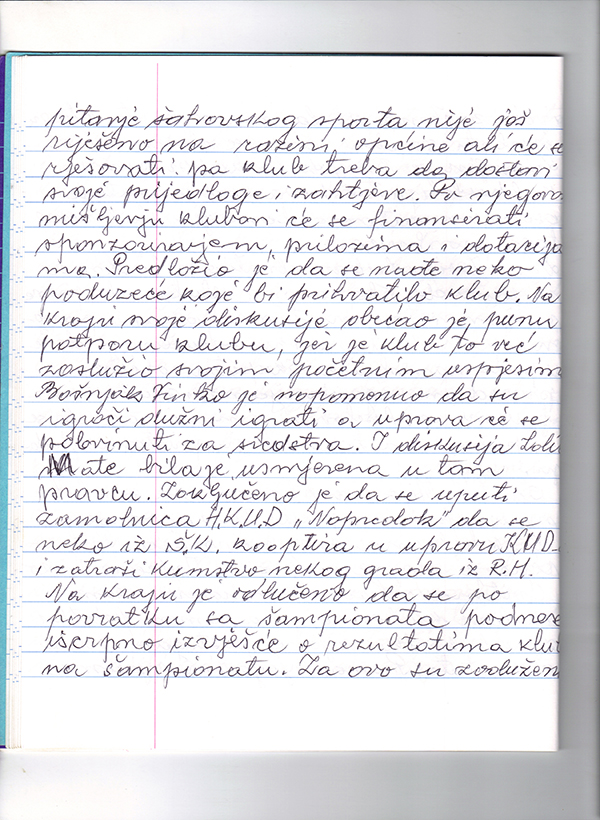 pitanje šahovskog sporta nije još
riješeno na razini općine ali će se
rješovati pa klub treba da dostavi
svoje prijedloge i zahtjeve. Po njegovo
mišljenju klubovi će se finansirati
sponzoriravjem, prilozima i dotacija
ma. Predložio je da se nađe neko
poduzeće koje bi prihvatilo klub. Na
kraju svoje diskusije obećao je punu
potporu klubu, jer je klub to već
zaslužio svojim početnim uspjesim
Bošnjak Vinko je napomenuo da su
igrači dužni igrati a uprava će se
pobrinuti za sredstva. I diskusija
Mate bila je usmjerena u tom
pravcu. Zaključeno je da se uputi
zamolnica H.K.U.D „Napredak" da se
neko iz Š.K. kooptira u upravu KUD-
i zatraži kumstvo nekog grada iz R.H.
Na kraju je odlučeno da se po
povratku sa šampionata podnese
iscrpno izvješće o rezultatima klu
na šampionatu. Za ovo su zaduženi